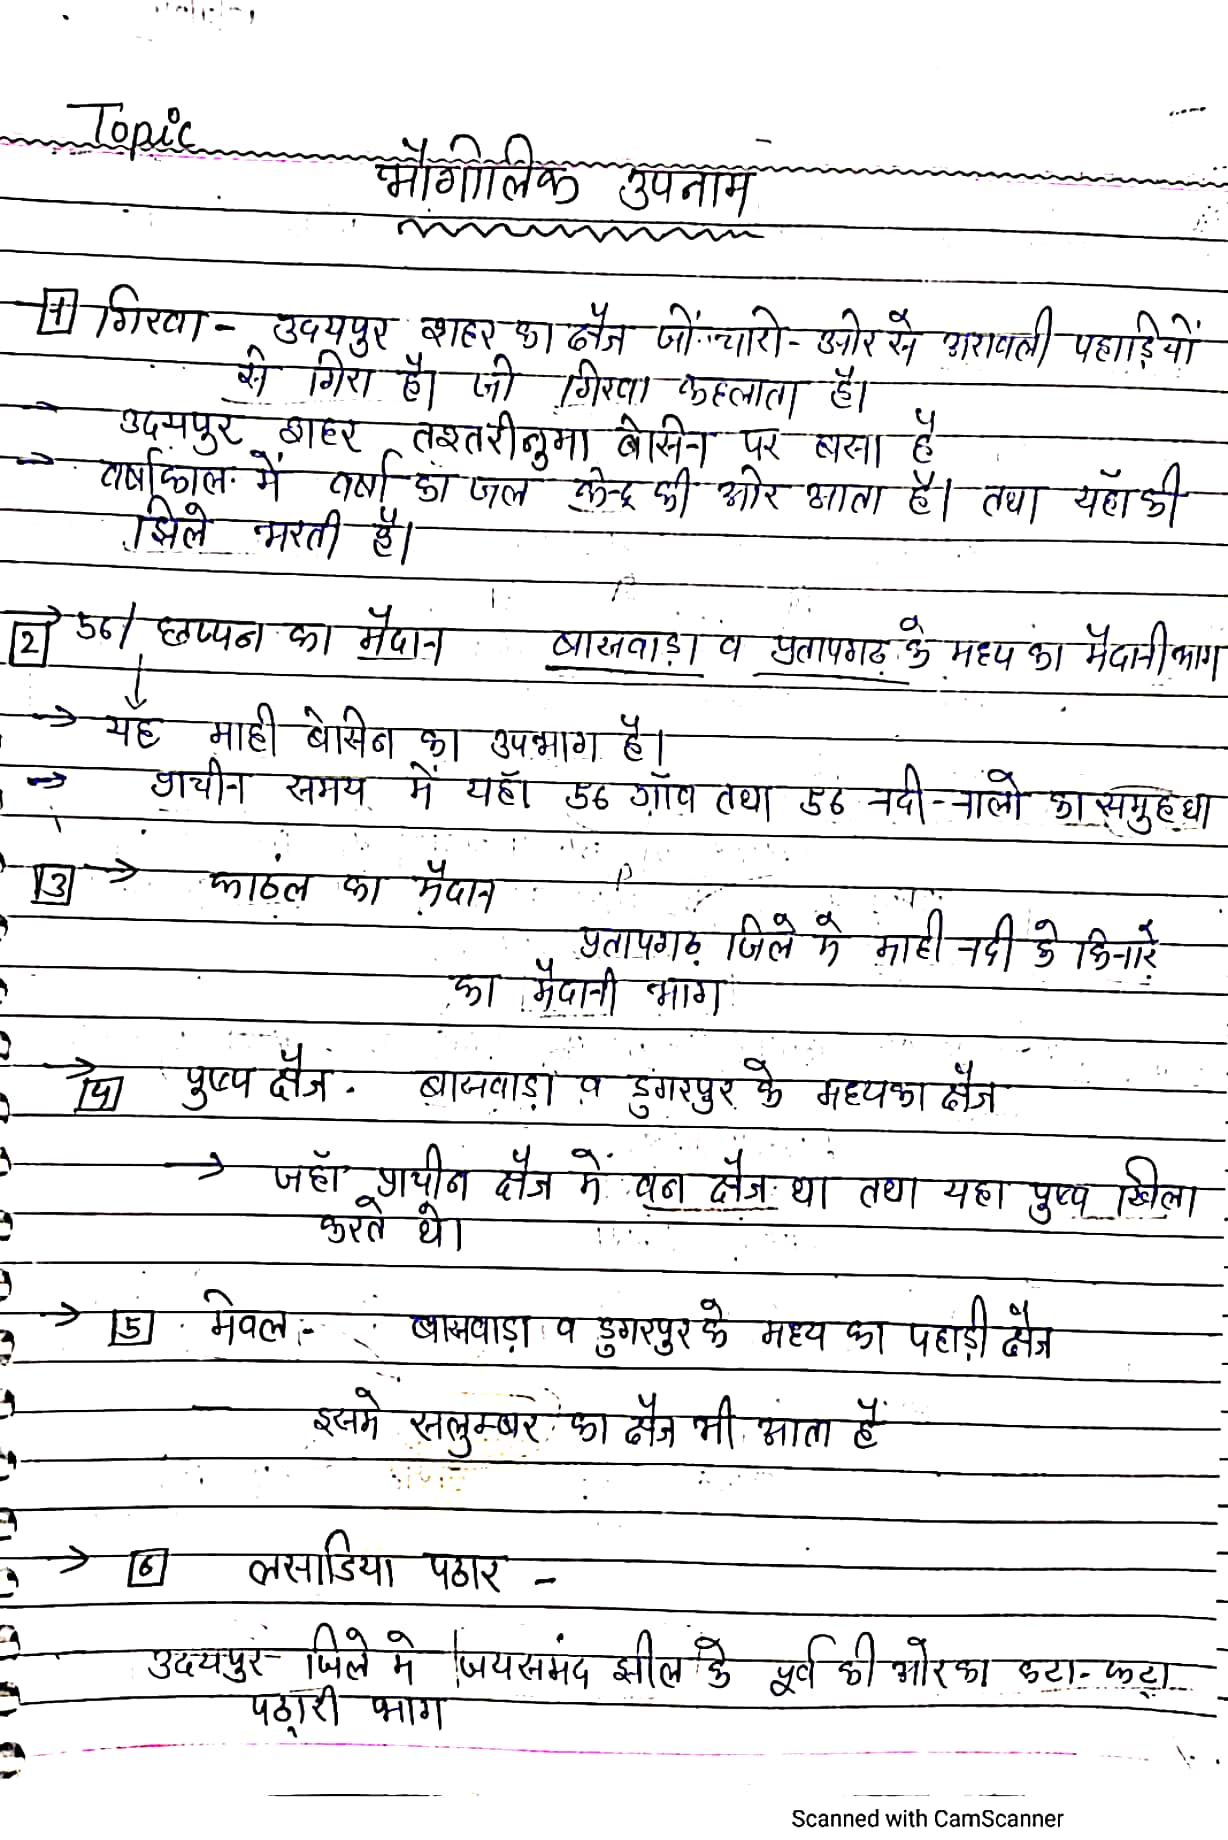 Topic
भौगोलिक उपनाम
1 गिरवा - उदयपुर शहर का क्षैत्र जों चारो-ओर से अरावली पहाड़ियों
से गिरा है। जो गिरवा कहलाता है।
→ उदयपुर शहर तश्तरीनुमा बेसिन पर बसा है
→ वर्षाकाल में वर्षा का जल केन्द्र की ओर आता है। तथा यहाँ की
झिले भरती है।
2 → 56/ छप्पन का मैदान बासवाड़ा व प्रतापगढ़ के मध्य का मैदानी भाग
→ यह माही बेसिन का उपभाग है।
→ प्राचीन समय में यहाँ 56 गाँव तथा 56 नदी-नालो का समुह था
3 → काठंल का मैदान
प्रतापगढ़ जिले मे माही नदी के किनारे
का मैदानी भाग
→ 4 पुष्प क्षैत्र. बासवाड़ा व डुंगरपुर के मध्य का क्षैत्र
→ जहाँ प्राचीन क्षैत्र में वन क्षैत्र था तथा यहा पुष्प खिला
करते थे।
→ 5 मेवल:- बासवाड़ा व डुगरपुर के मध्य का पहाड़ी क्षैत्र
इसमे सलुम्बर का क्षैत्र भी आता है
→ 6 लसाडिया पठार -
उदयपुर जिले मे जयसमंद झील के पूर्व की ओर का कटा-फटा
पठारी भाग
Scanned with CamScanner